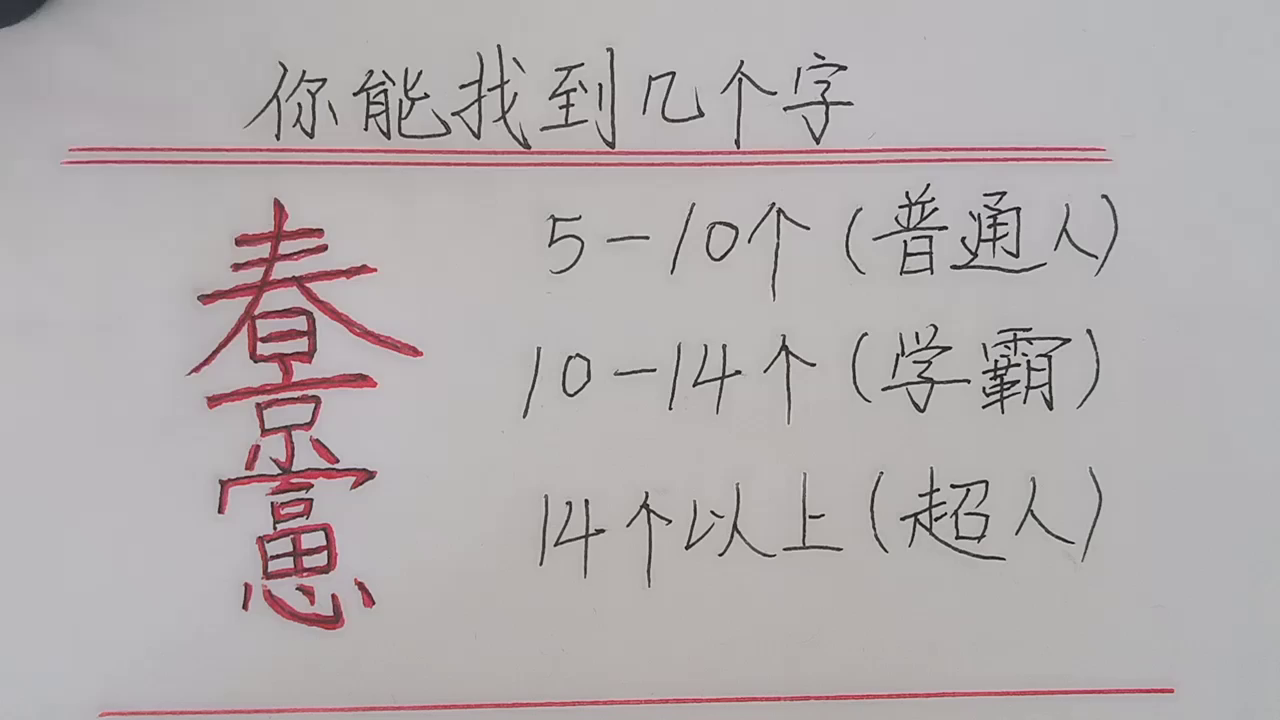 你能找到几个字
5-10个(普通人)
10-14个(学霸)
14个以上(超人)